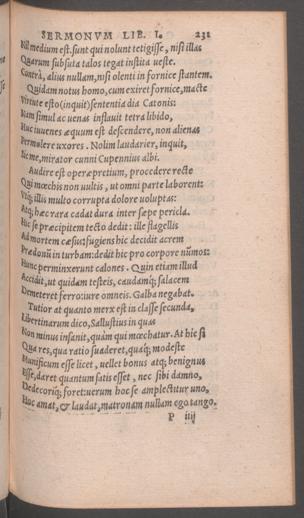 SERMONVM LIB. I. 231
Nil medium est. sunt qui nolunt tetigisse, nisi illas
Quarum subsuta talos tegat instita ueste.
Contrà, alius nullam, nisi olenti in fornice stantem.
Quidam notus homo, cum exiret fornice, macte
Virtute esto (inquit) sententia dia Catonis:
Nam simul ac uenas inflauit tetra libido,
Huc iuuenes æquum est descendere, non alienas
Permolere uxores. Nolim laudarier, inquit,
Sic me, mirator cunni Cupennius albi.
Audire est operæpretium, procedere recte
Qui mœchis non uultis, ut omni parte laborent:
Vtq́; illis multo corrupta dolore uoluptas:
Atq; hæc rara cadat dura inter sæpe pericla.
Hic se præcipitem tecto dedit: ille flagellis
Ad mortem cæsus: fugiens hic decidit acrem
Prædonũ in turbam: dedit hic pro corpore nũmos:
Hunc perminxerunt calones. Quin etiam illud
Accidit, ut quidam testeis, caudamq́; salacem
Demeteret ferro: iure omneis. Galba negabat.
Tutior at quanto merx est in classe secunda,
Libertinarum dico, Sallustius in quas
Non minus insanit, quàm qui mœchatur. At hic si
Qua res, qua ratio suaderet, quaq́; modeste
Munificum esse licet, uellet bonus atq; benignus
Esse, daret quantum satis esset, nec sibi damno,
Dedecoriq́; foret: uerum hoc se amplectitur uno,
Hoc amat, & laudat, matronam nullam ego tango.
P iiij